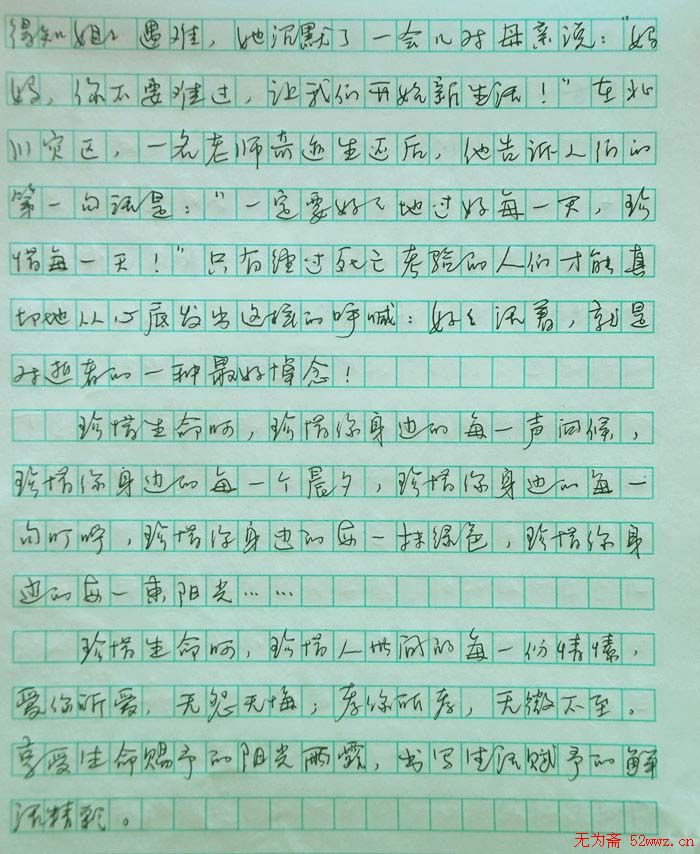 得知姐姐遇难，她沉默了一会儿对母亲说："妈
妈，你不要难过，让我们开始新生活！"在北
川灾区，一名老师奇迹生还后，他告诉人们的
第一句话是："一定要好好地过好每一天，珍
惜每一天！"只有经过死亡考验的人们才能真
切地从心底发出这样的呼喊：好好活着，就是
对逝者的一种最好悼念！
珍惜生命呵，珍惜你身边的每一声问候，
珍惜你身边的每一个晨夕，珍惜你身边的每一
句叮咛，珍惜你身边的每一抹绿色，珍惜你身
边的每一束阳光……
珍惜生命呵，珍惜人世间的每一份情愫，
爱你所爱，无怨无悔；孝你所孝，无微不至。
享受生命赐予的阳光雨露，书写生活赋予的鲜
活精彩。
无为斋 52wwz.cn